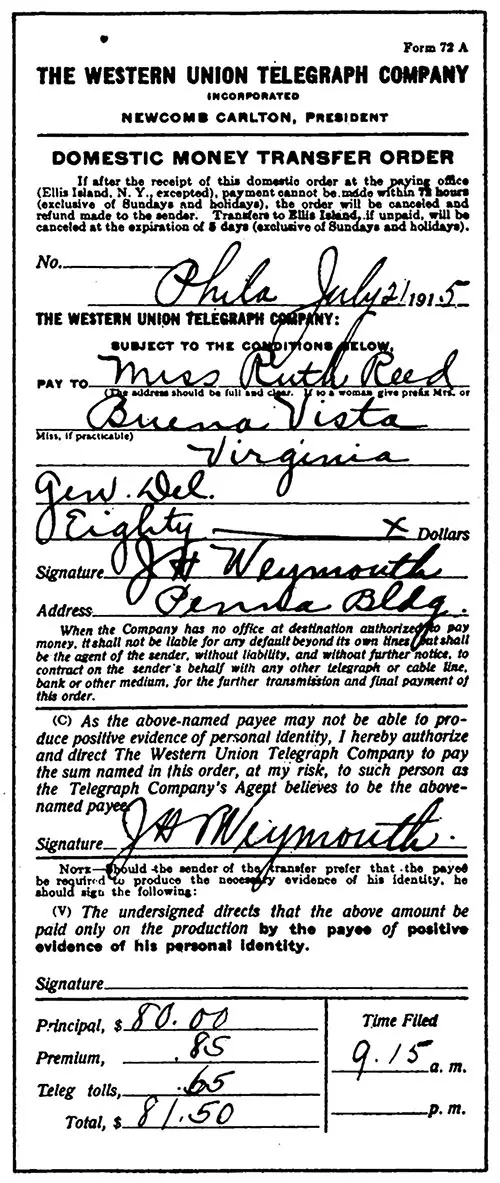 Form 72 A
THE WESTERN UNION TELEGRAPH COMPANY
INCORPORATED
NEWCOMB CARLTON, PRESIDENT
DOMESTIC MONEY TRANSFER ORDER
If after the receipt of this domestic order at the paying office
(Ellis Island, N. Y., excepted), payment cannot be made within 72 hours
(exclusive of Sundays and holidays), the order will be canceled and
refund made to the sender. Transfers to Ellis Island, if unpaid, will be
canceled at the expiration of 5 days (exclusive of Sundays and holidays).
No.
Phila July 21 1915
THE WESTERN UNION TELEGRAPH COMPANY:
SUBJECT TO THE CONDITIONS BELOW,
PAY TO Miss Ruth Reed
(The address should be full and clear. If to a woman give prefix Mrs. or
Buena Vista
Miss, if practicable)
Virginia
Gen. Del.
Eighty x Dollars
Signature J H Weymouth
Address Penna Bldg.
When the Company has no office at destination authorized to pay
money, it shall not be liable for any default beyond its own lines, but shall
be the agent of the sender, without liability, and without further notice, to
contract on the sender's behalf with any other telegraph or cable line,
bank or other medium, for the further transmission and final payment of
this order.
(C) As the above-named payee may not be able to pro-
duce positive evidence of personal identity, I hereby authorize
and direct The Western Union Telegraph Company to pay
the sum named in this order, at my risk, to such person as
the Telegraph Company's Agent believes to be the above-
named payee.
Signature J H Weymouth.
NOTE—Should the sender of the transfer prefer that the payee
be required to produce the necessary evidence of his identity, he
should sign the following:
(V) The undersigned directs that the above amount be
paid only on the production by the payee of positive
evidence of his personal identity.
Signature
Principal, $ 80.00
Time Filed
Premium, .85
9.15 a. m.
Teleg tolls, .65
p. m.
Total, $ 81.50